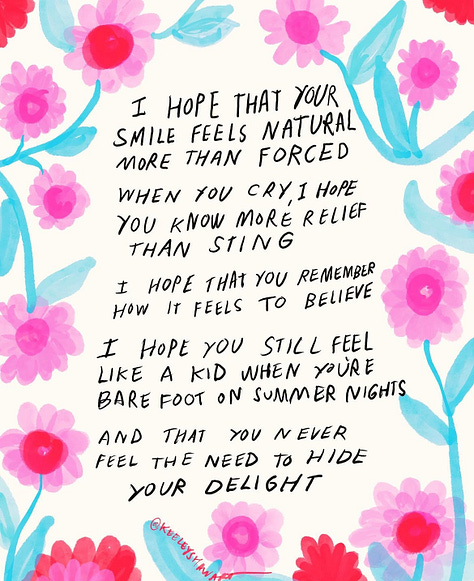 I HOPE THAT YOUR
SMILE FEELS NATURAL
MORE THAN FORCED
WHEN YOU CRY, I HOPE
YOU KNOW MORE RELIEF
THAN STING
I HOPE THAT YOU REMEMBER
HOW IT FEELS TO BELIEVE
I HOPE YOU STILL FEEL
LIKE A KID WHEN YOU'RE
BARE FOOT ON SUMMER NIGHTS
AND THAT YOU NEVER
FEEL THE NEED TO HIDE
YOUR DELIGHT